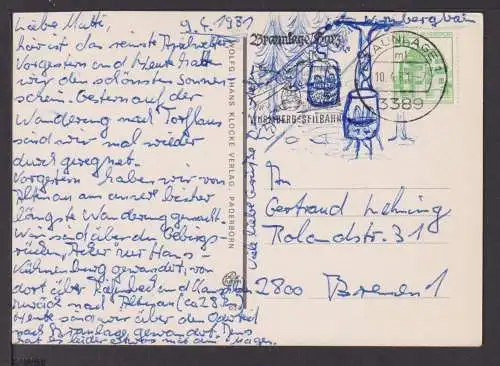 Liebe Mutti, 9.4.1981
hier ist das reinste Aprilwetter
Vorgestern und Heute hatten
wir den schönsten Sonnen-
schein. Gestern auf der
Wanderung nach Torfhaus
sind wir mal wieder
durch geregnet.
Vorgestern haben wir von
Altenau aus unsere bisher
längste Wanderung gemacht.
Wir sind über den Gebirgs-
rücken, Acker zur Hans-
Kühnenburg gewandert, von
dort über
zurück nach Altenau (ca 28 km)
Heute sind wir über den
nach Braunlage gewandert. Uns
hat es leider etwas mit Magen.
WOLFG. HANS KLOCKE VERLAG, PADERBORN
Viele liebe Grüße
Braunlage Harz
WURMBERG-SEILBAHN
Wurmbergbahn
BRAUNLAGE 1
10.4.81
3389
An
Gertraud Lehning
Rolandstr. 31
2800
Bremen 1